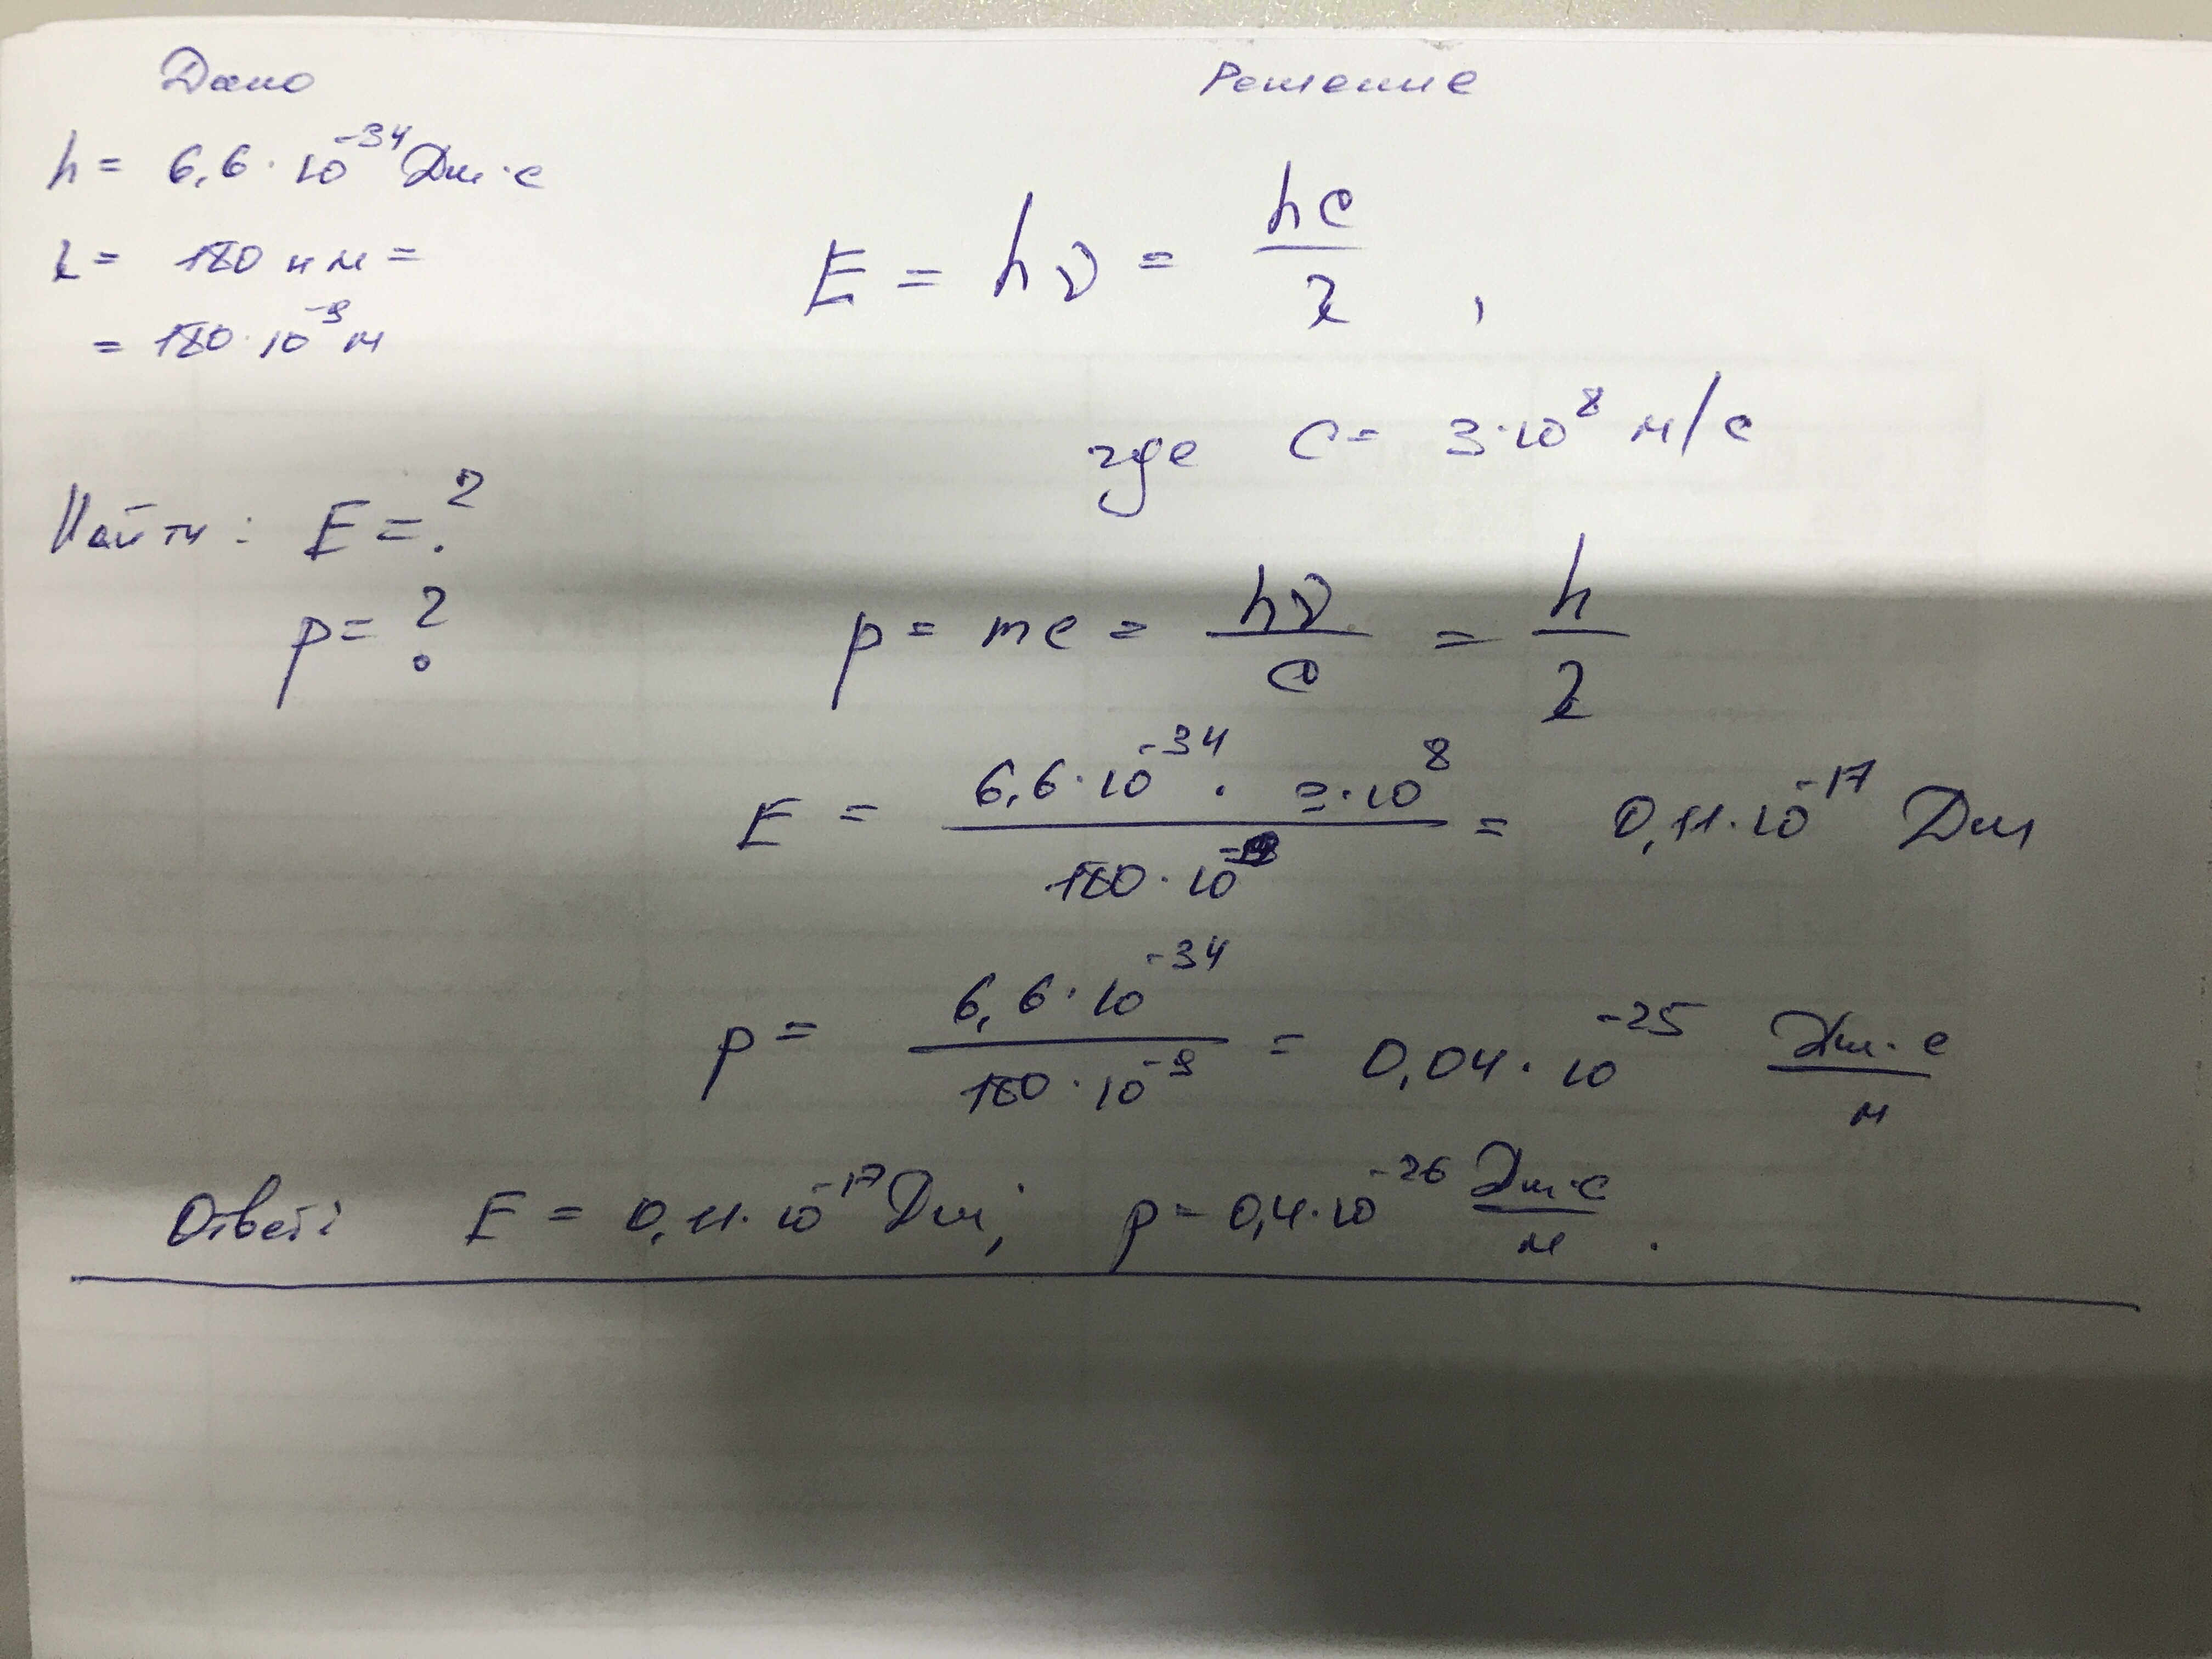 Дано
h = 6,6 · 10⁻³⁴ Дж·с
λ = 180 нм =
= 180 · 10⁻⁹ м
Найти: E = ?
p = ?
Решение
E = hν = hc/λ ,
где c = 3·10⁸ м/с
p = mc = hν/c = h/λ
E = 6,6·10⁻³⁴ · 3·10⁸ / 180·10⁻⁹ = 0,11·10⁻¹⁷ Дж
p = 6,6·10⁻³⁴ / 180·10⁻⁹ = 0,04·10⁻²⁵ Дж·с/м
Ответ: E = 0,11·10⁻¹⁷ Дж; p = 0,4·10⁻²⁶ Дж·с/м .